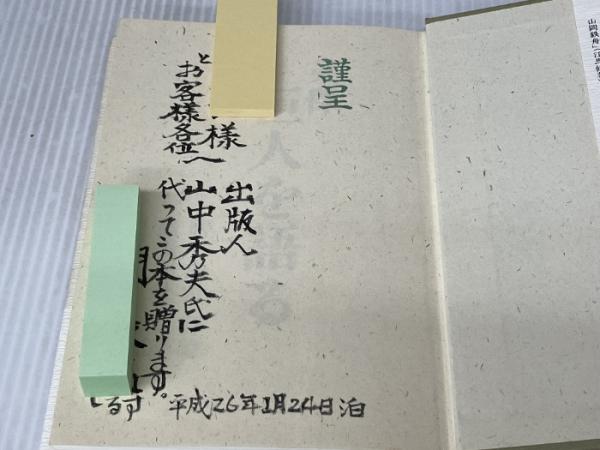 謹呈
様
と
お客様各位へ
出版人
山中秀夫氏に
代ってこの本を贈ります。
しるす
平成26年1月24日泊